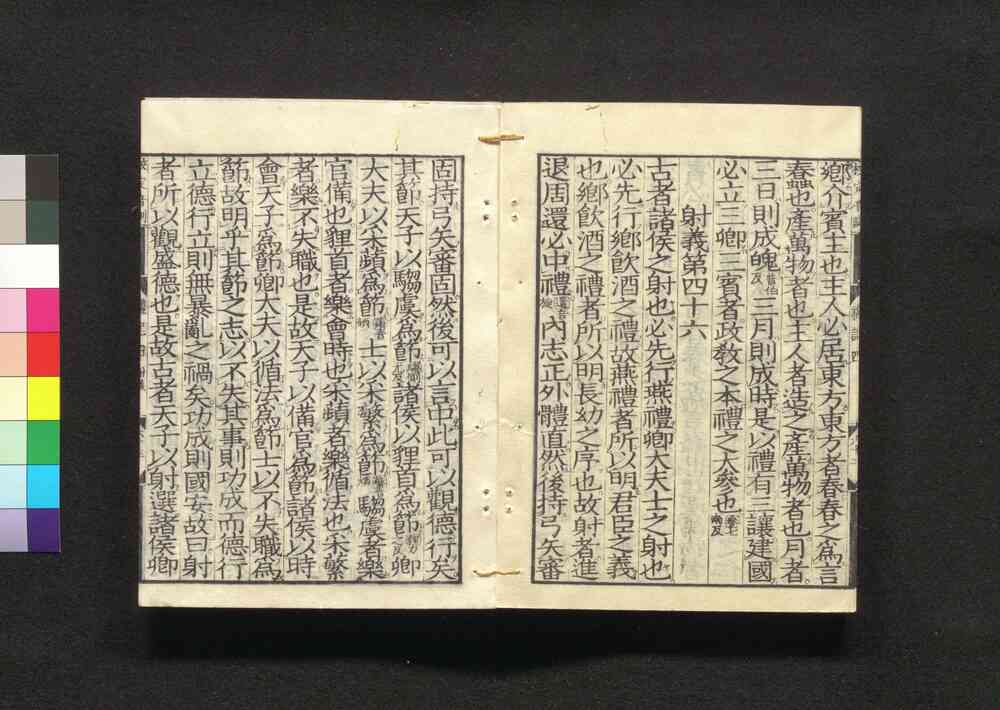 鄉介賓主也主人必居東方東方者春春之爲言
蠢也產萬物者也主人者造之產萬物者也月者
三日則成魄三月則成時是以禮有三讓建國
必立三卿三賓者政教之本禮之大參也
射義第四十六
古者諸侯之射也必先行燕禮卿大夫士之射也
必先行鄉飲酒之禮故燕禮者所以明君臣之義
也鄉飲酒之禮者所以明長幼之序也故射者進
退周還必中禮內志正外體直然後持弓矢審
固持弓矢審固然後可以言中此可以觀德行矣
其節天子以騶虞爲節諸侯以貍首爲節卿
大夫以采蘋爲節士以采繁爲節騶虞者樂
官備也貍首者樂會時也采蘋者樂循法也采繁
者樂不失職也是故天子以備官爲節諸侯以時
會天子爲節卿大夫以循法爲節士以不失職爲
節故明乎其節之志以不失其事則功成而德行
立德行立則無暴亂之禍矣功成則國安故曰射
者所以觀盛德也是故古者天子以射選諸侯卿